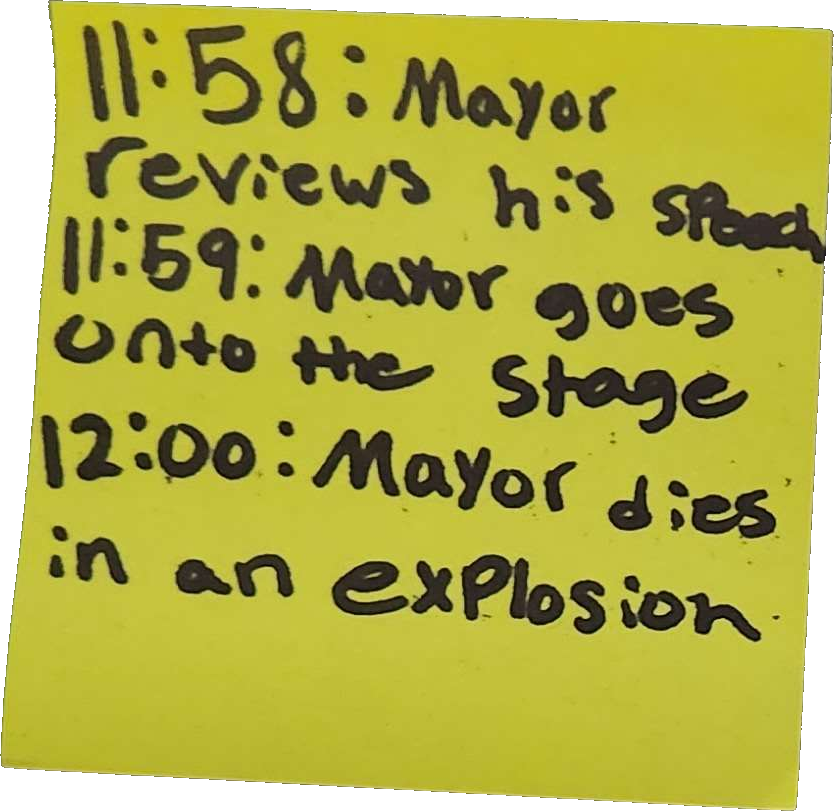 11:58: Mayor
reviews his speech
11:59: Mayor goes
onto the stage
12:00: Mayor dies
in an explosion